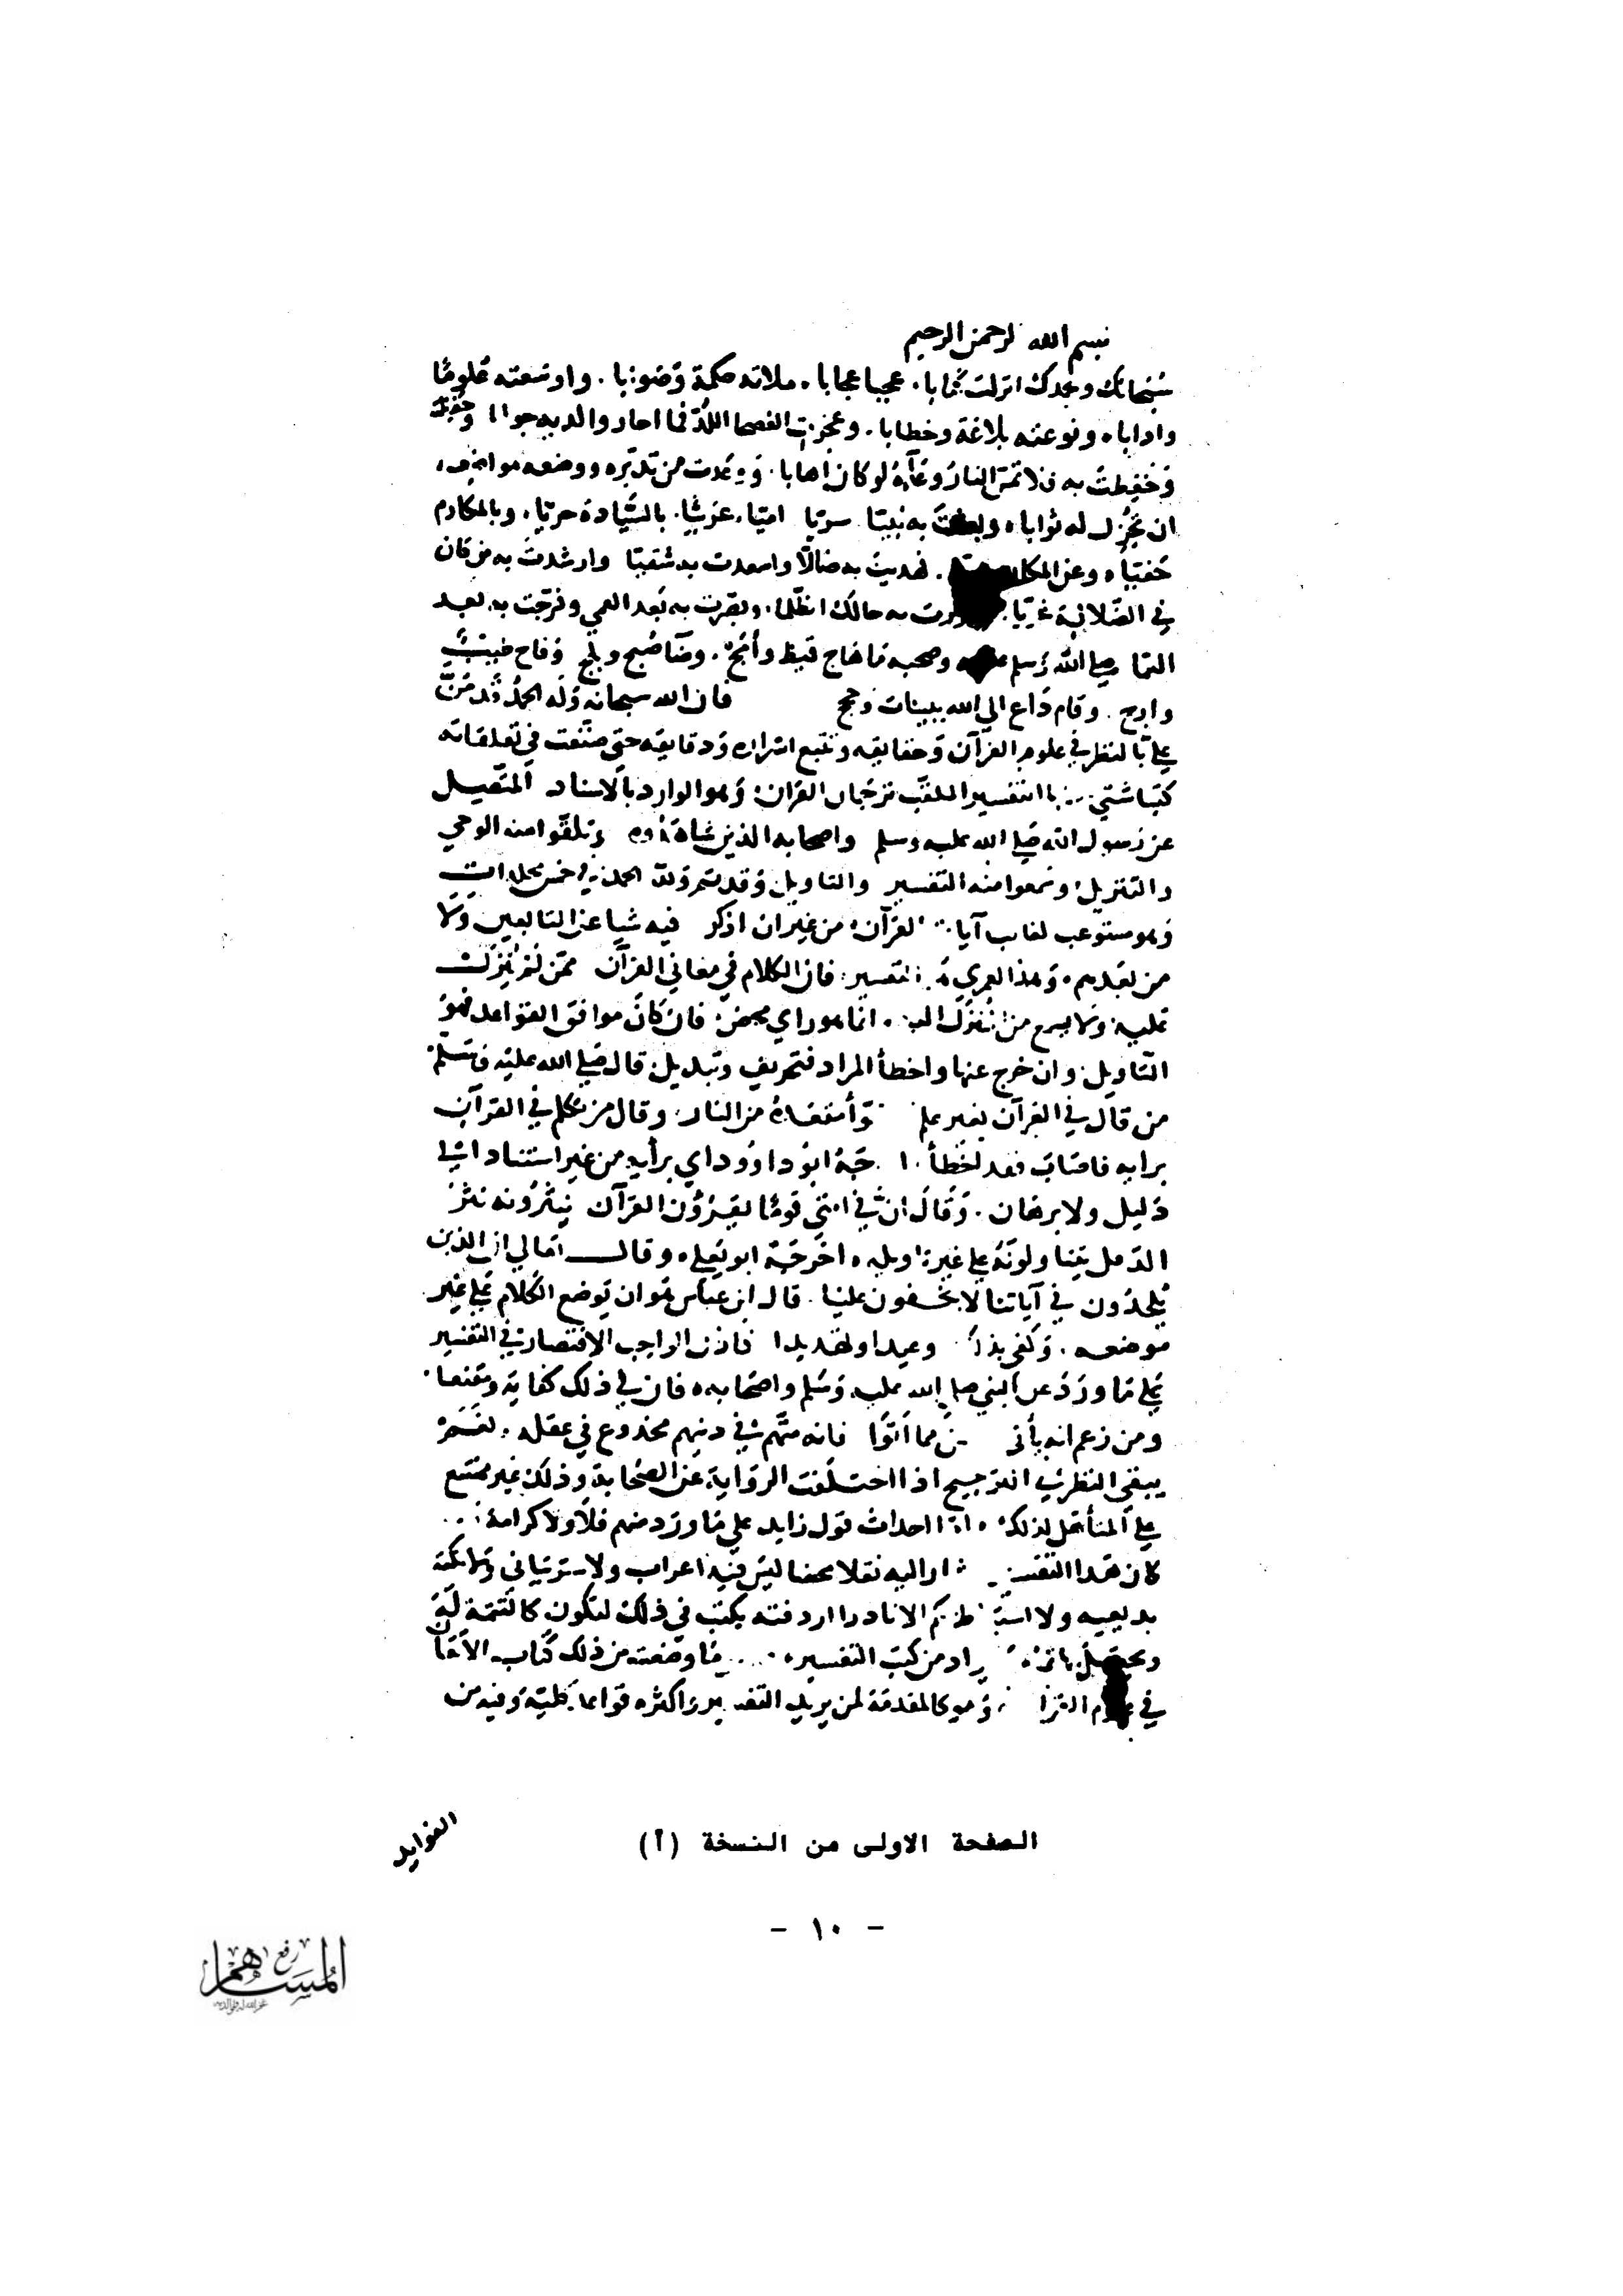 بسم الله الرحمن الرحيم
سبحانك وبحمدك انزلت كتابا. عجبا عجابا. ملاته حكمة وصوابا. واوسعته علومًا
وادابا. ونوعته بلاغة وخطابا. وعجزت الفصحا اللد فما احاروا لديه جوابا
وحفظت به فلا تمسه النار وعاه لو كان اهابا. ووعدت من تدبره ووضعه مواضعه
ان تجزل له ثوابا. به نبيًا سريًا اميًا. عرشيًا. بالسيادة حريًا. وبالمكارم
حفيًا. وعن. فهديت به ضالًا واسعدت به شقيًا وارشدت به من كان
في الضلالة غريًا. به حالك الظلما. وبصرت به بعد العمي وفرجت به بعد
صلي الله وسلم وصحبه ما هاج قيظ وأبلج. وضآ صبح وبلج وفاح طيب
وارج. وقام داع الي الله ببينات وحجج فان الله سبحانه وله الحمد قد من
علي بالنظر في علوم القرآن وحقايقه وتتبع اسراره ودقايقه حتى صنفت في تعلقاته
كتبا شتي التفسير الملقب ترجمان القرآن وهو الوارد بالاسناد المتصل
عن رسول الله صلي الله عليه وسلم واصحابه الذين شاهدوه وتلقوا منه الوحي
والتنزيل وسمعوا منه التفسير والتاويل وقد تم ولله الحمد في خمس مجلدات
وهو مستوعب لغالب آيات القرآن من غير ان اذكر فيه شيا عن التابعين ولا
من بعدهم. وهذا لعمري التفسير فان الكلام في معاني القرآن ممن لم ينزل
عليه ولا سمع من المنزل اليه. انما هو راي محض فان كان موافق القواعد فهو
التاويل وان خرج عنها واخطأ المراد فتحريف وتبديل قال صلي الله عليه وسلم
من قال في القرآن بغير علم فليتبوأ مقعده من النار وقال من تكلم في القرآن
برايه فاصاب فقد اخطأ. اخرجه ابو داوود اي برأيه من غير استناد الي
دليل ولا برهان. وقال ان في امتي قومًا يقرؤن القرآن ينثرونه نثر
الدقل يتاولونه علي غير تاويله. اخرجه ابو يعلي. وقال تعالي ان الذين
يلحدون في آياتنا لا يخفون علينا. قال ابن عباس هو ان توضع الكلام علي غير
موضعه. وكفى بذلك وعيدا وتهديدا فاذن الواجب الاقتصار في التفسير
علي ما ورد عن النبي صلي الله عليه وسلم واصحابه. فان في ذلك كفاية ومقنعا.
ومن زعم انه يأتي مما أتوا فانه متهم في دينهم مخدوع في عقله. نعم
يبقي النظر في الترجيح اذا اختلفت الرواية عن الصحابة وذلك غير ممتنع
علي المتأهل لذلك. واما احداث قول زايد علي ما ورد منهم فلا ولا كرامة
كان هذا التفسير المشار اليه نقلا محضا ليس فيه اعراب ولا سر بياني ولا نكتة
بديعيه ولا استنباط حكم الا نادرا اردفته بكتب في ذلك لتكون كالتتمة له
من كتب التفسير ما وضعته من ذلك كتاب الاتقان
في علوم القرآن وهو كالمقدمة لمن يريد التفسير واكثره قواعد كلية وفيه من
الفوايد
الصفحة الاولى من النسخة (أ)
- ١٠ -
رفع
المساهم
غفر الله له ولوالديه